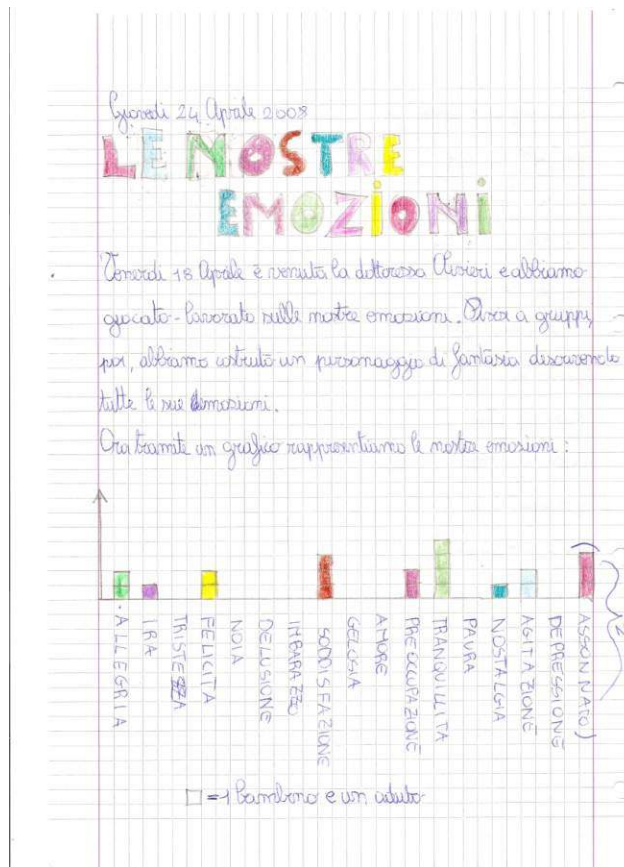 Giovedì 24 Aprile 2008
LE NOSTRE
EMOZIONI
Venerdì 18 Aprile è venuta la dottoressa e abbiamo
giocato-lavorato sulle nostre emozioni. Divisi a gruppi,
poi, abbiamo costruito un personaggio di fantasia descrivendo
tutte le sue emozioni.
Ora tramite un grafico rappresentiamo le nostre emozioni:
ALLEGRIA
IRA
TRISTEZZA
FELICITA
NOIA
DELUSIONE
IMBARAZZO
SODDISFAZIONE
GELOSIA
AMORE
PREOCCUPAZIONE
TRANQUILLITA
PAURA
NOSTALGIA
AGITAZIONE
DEPRESSIONE
(ASSONNATO)
=1 bambino e un adulto